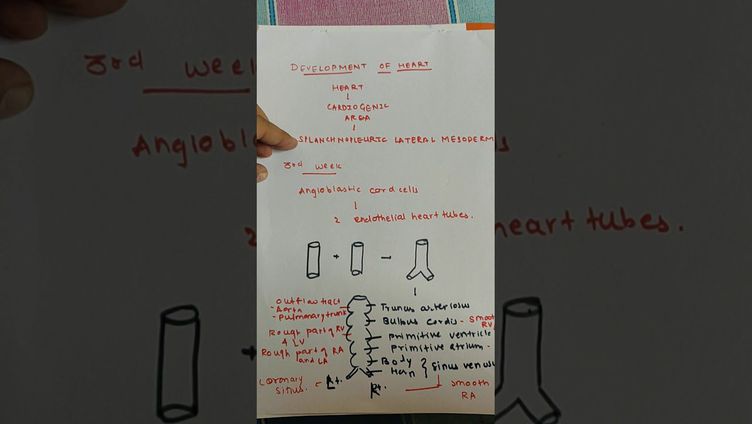 DEVELOPMENT OF HEART
HEART
CARDIOGENIC
AREA
SPLANCHNOPLEURIC LATERAL MESODERM
3rd week
Angioblastic cord cells
2 endothelial heart tubes.
+ -
outflow tract
- Aorta
- Pulmonary trunk
Rough part of RV
& LV
Rough part of RA
and LA
coronary
sinus.
Lt.
Rt.
Truncus arteriosus
Bulbus cordis - Smooth
RV
primitive ventricle
primitive atrium -
Body
Horn } sinus venosus
smooth
RA
3rd week
Angiobl
2
heart tubes.
+